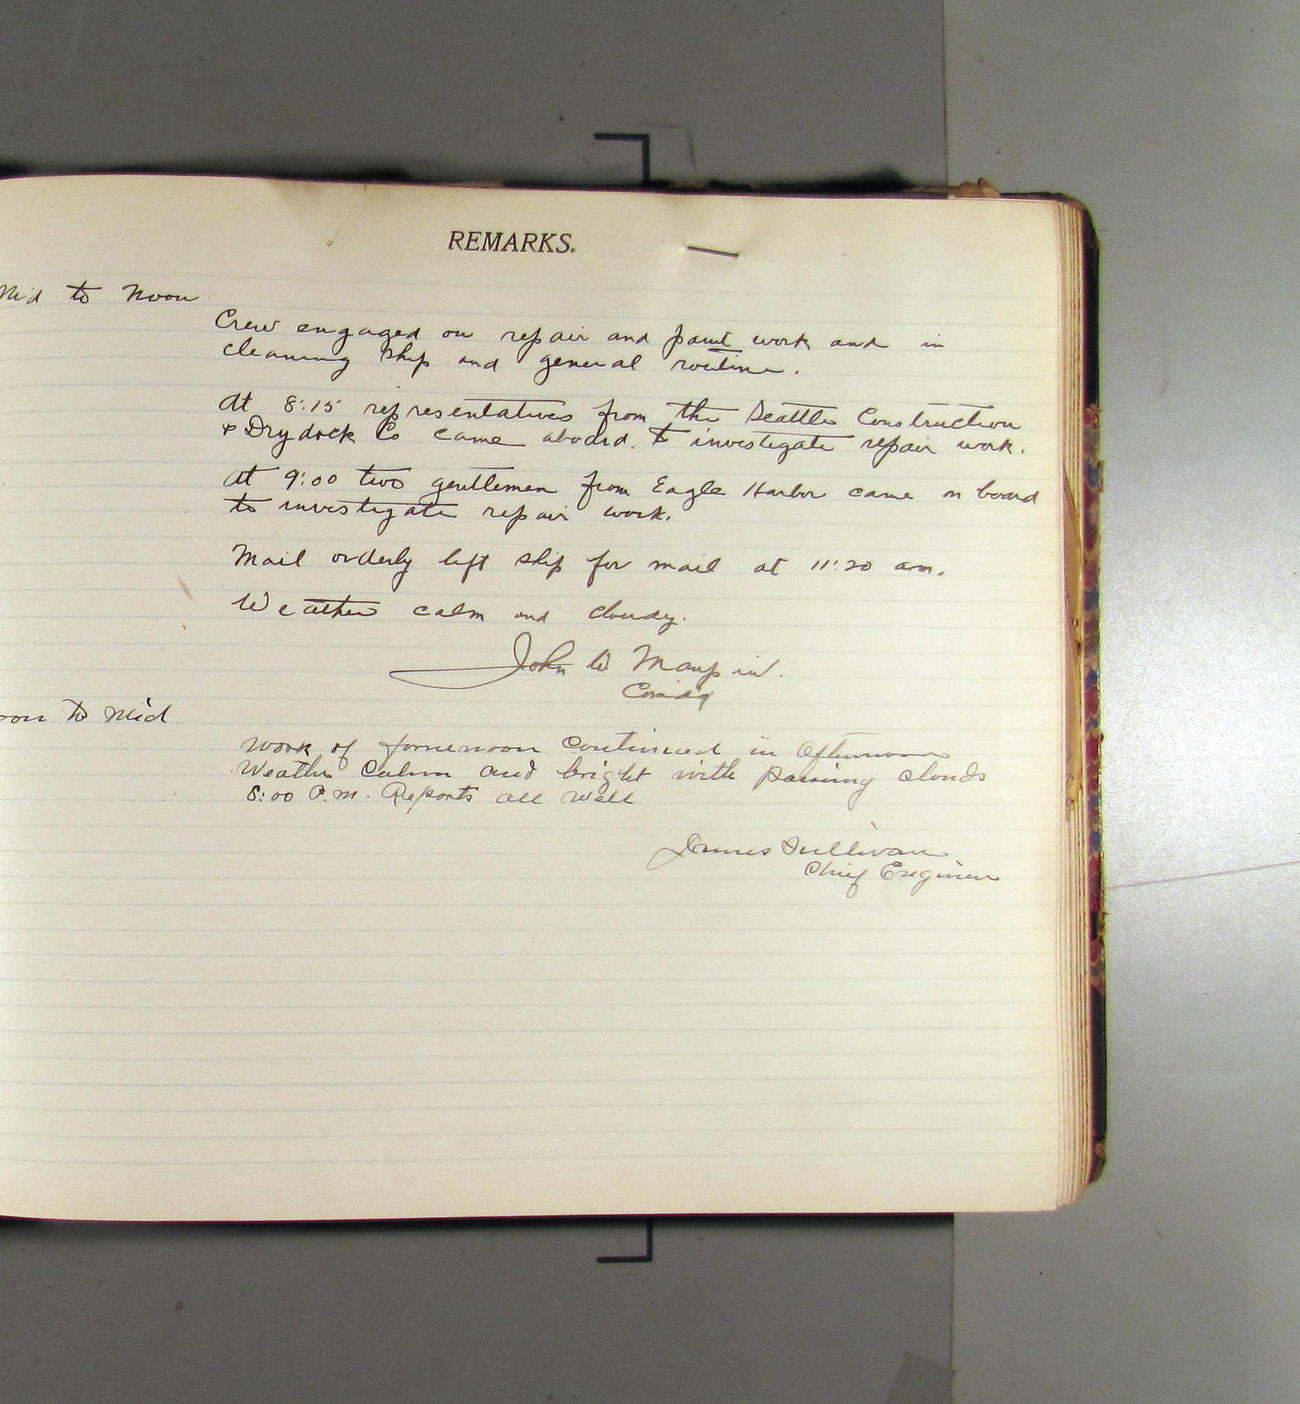 REMARKS.
Mid to Noon
Crew engaged on repair and paint work and in
cleaning ship and general routine.
At 8:15 representatives from the Seattle Construction
& Drydock Co came aboard. to investigate repair work.
At 9:00 two gentlemen from Eagle Harbor came on board
to investigate repair work.
Mail orderly left ship for mail at 11:20 am.
Weather calm and cloudy.
John W Maupin.
Comdg
oon to Mid
Work of fornenoon continued in afternoon
Weather Calm and bright with passing clouds
8:00 P.M. Reports all well
James Sullivan
Chief Engineer